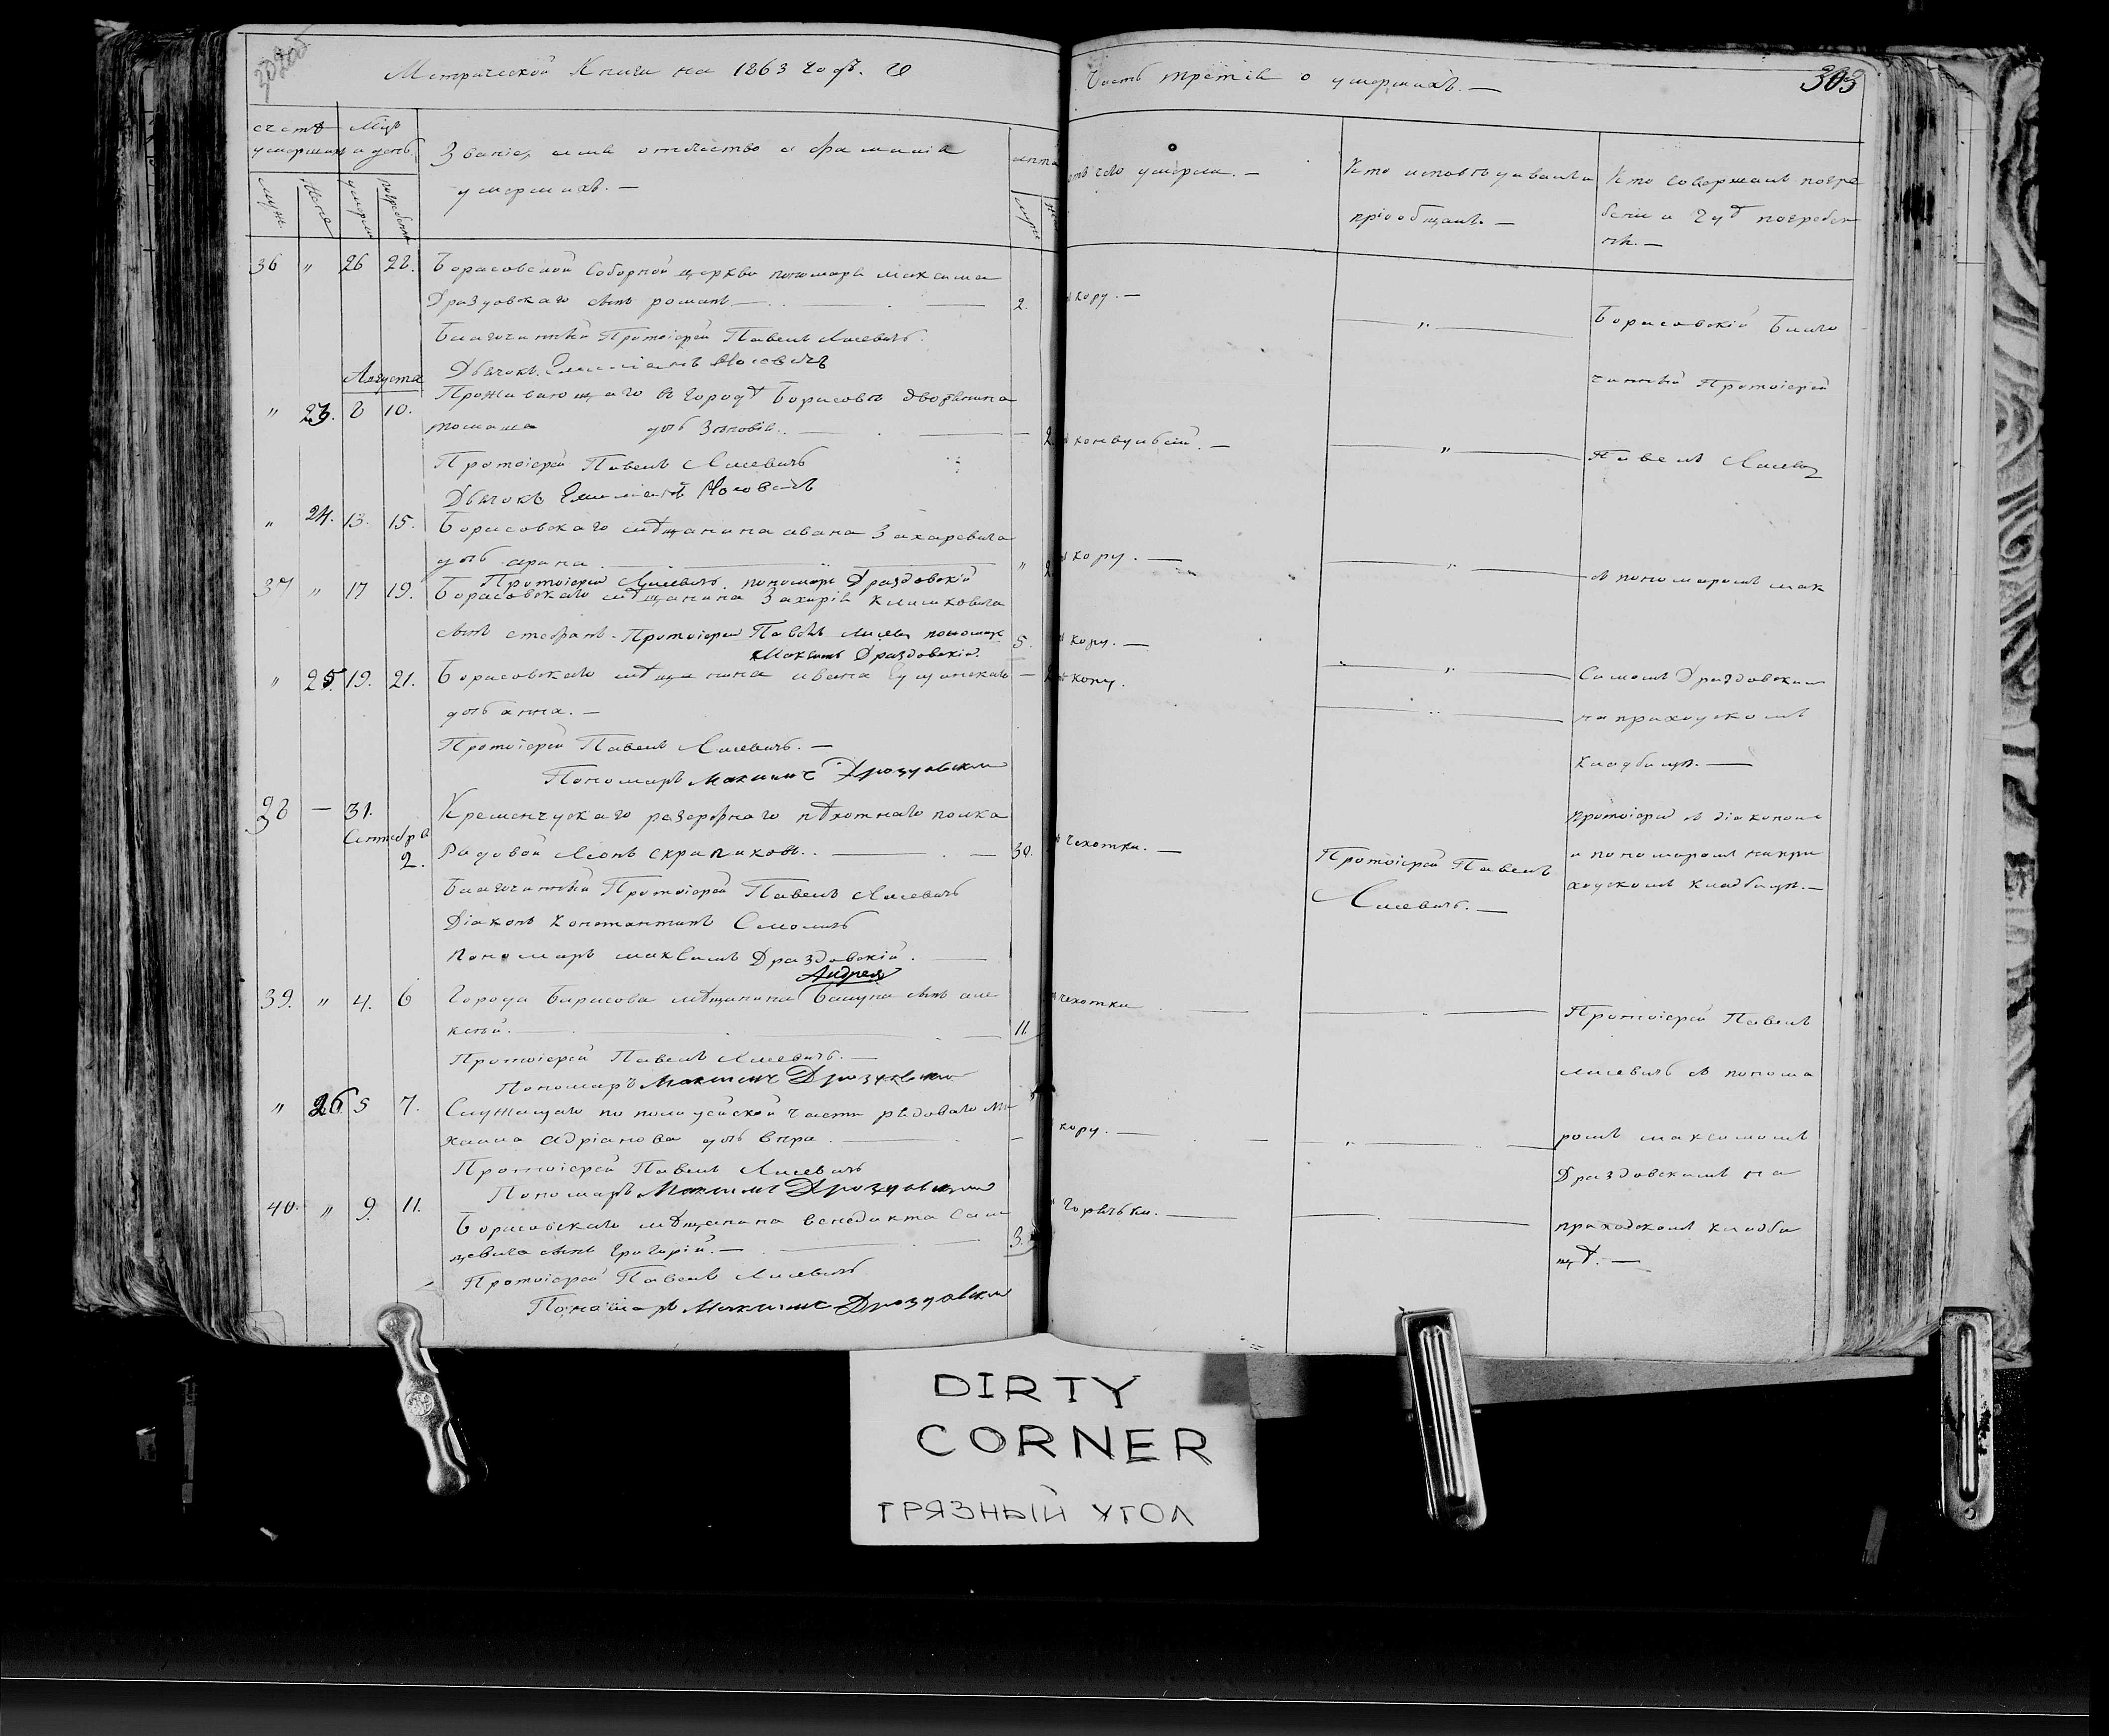 Метрической Книги на 1863 годъ.
Часть третія о умершихъ. —
303
счетъ умершихъ
Мцъ и день
Званіе, имя отчество и фамилія
умершихъ. —
лѣта
отъ чего умерли. —
Кто исповѣдывалъ и
пріобщалъ. —
Кто совершалъ погре
беніе и гдѣ погребе
ны. —
муж.
жен.
умерли
погребены
36 " 26 28. Борисовской Соборной церкви пономаря Максима
Драздовскаго сынъ романъ — 2. кору. —
Благочинный Протоіерей Павелъ Лисевичъ.
Дьячокъ Емиліанъ Носовичъ
Августа
" 23. 8 10. Проживающаго въ городѣ Борисовѣ дворянина
томаша дочь Зѣновія. — 2. конвульсій. —
Протоіерей Павелъ Лисевичъ
Дьячокъ Емиліанъ Носовичъ
" 24. 13. 15. Борисовскаго мѣщанина ивана Захаревича
дочь ирина. кору. —
Протоіерей Лисевичъ. пономарь Драздовскій
37 " 17 19. Борисовскаго мѣщанина Захарія Климковича
сынъ стефанъ. Протоіерей Павелъ Лисевич пономарь 5. кору. —
Максимъ Драздовскій.
" 25. 19. 21. Борисовскаго мѣщанина ивана — кору.
дочь анна. —
Протоіерей Павелъ Лисевичъ. —
Пономарь Максимъ Дроздовский
38 — 31. Кременчускаго резервнаго пѣхотнаго полка
Сентября
2. Рядовой Леонъ Скрапиковъ. — 30. чехотки. —
Благочинный Протоіерей Павелъ Лисевичъ
Діаконъ Константинъ Смоличъ
Пономарь Максимъ Драздовскій. —
Андрея
39. " 4. 6 Города Борисова мѣщанина Башуна сынъ але
ксѣй. — 11. чехотки
Протоіерей Павелъ Лисевичъ. —
Пономарь Максимъ Дроздовский
" 26 5 7. Служащаго по полицейской части рядоваго Ми
хаила Адріанова дочь вѣра. — кору. —
Протоіерей Павелъ Лисевичъ
Пономарь Максимъ Дроздовский
40. " 9. 11. Борисовскаго мѣщанина Венедикта
сынъ Григорій. — 3. горячьки. —
Протоіерей Павелъ Лисевичъ
Пономарь Максимъ Дроздовский
Протоіерей Павелъ
Лисевичъ. —
Борисовскій Благо
чинный Протоіерей
Павелъ Лисевич
съ пономаромъ Мак
симомъ Драздовским
на приходскомъ
кладбищѣ. —
протоіерей съ діакономъ
и пономаромъ на при
ходскомъ кладбищѣ. —
Протоіерей Павелъ
Лисевичъ съ понома
ромъ Максимомъ
Драздовскимъ на
приходскомъ кладби
щѣ. —
DIRTY
CORNER
ГРЯЗНЫЙ УГОЛ